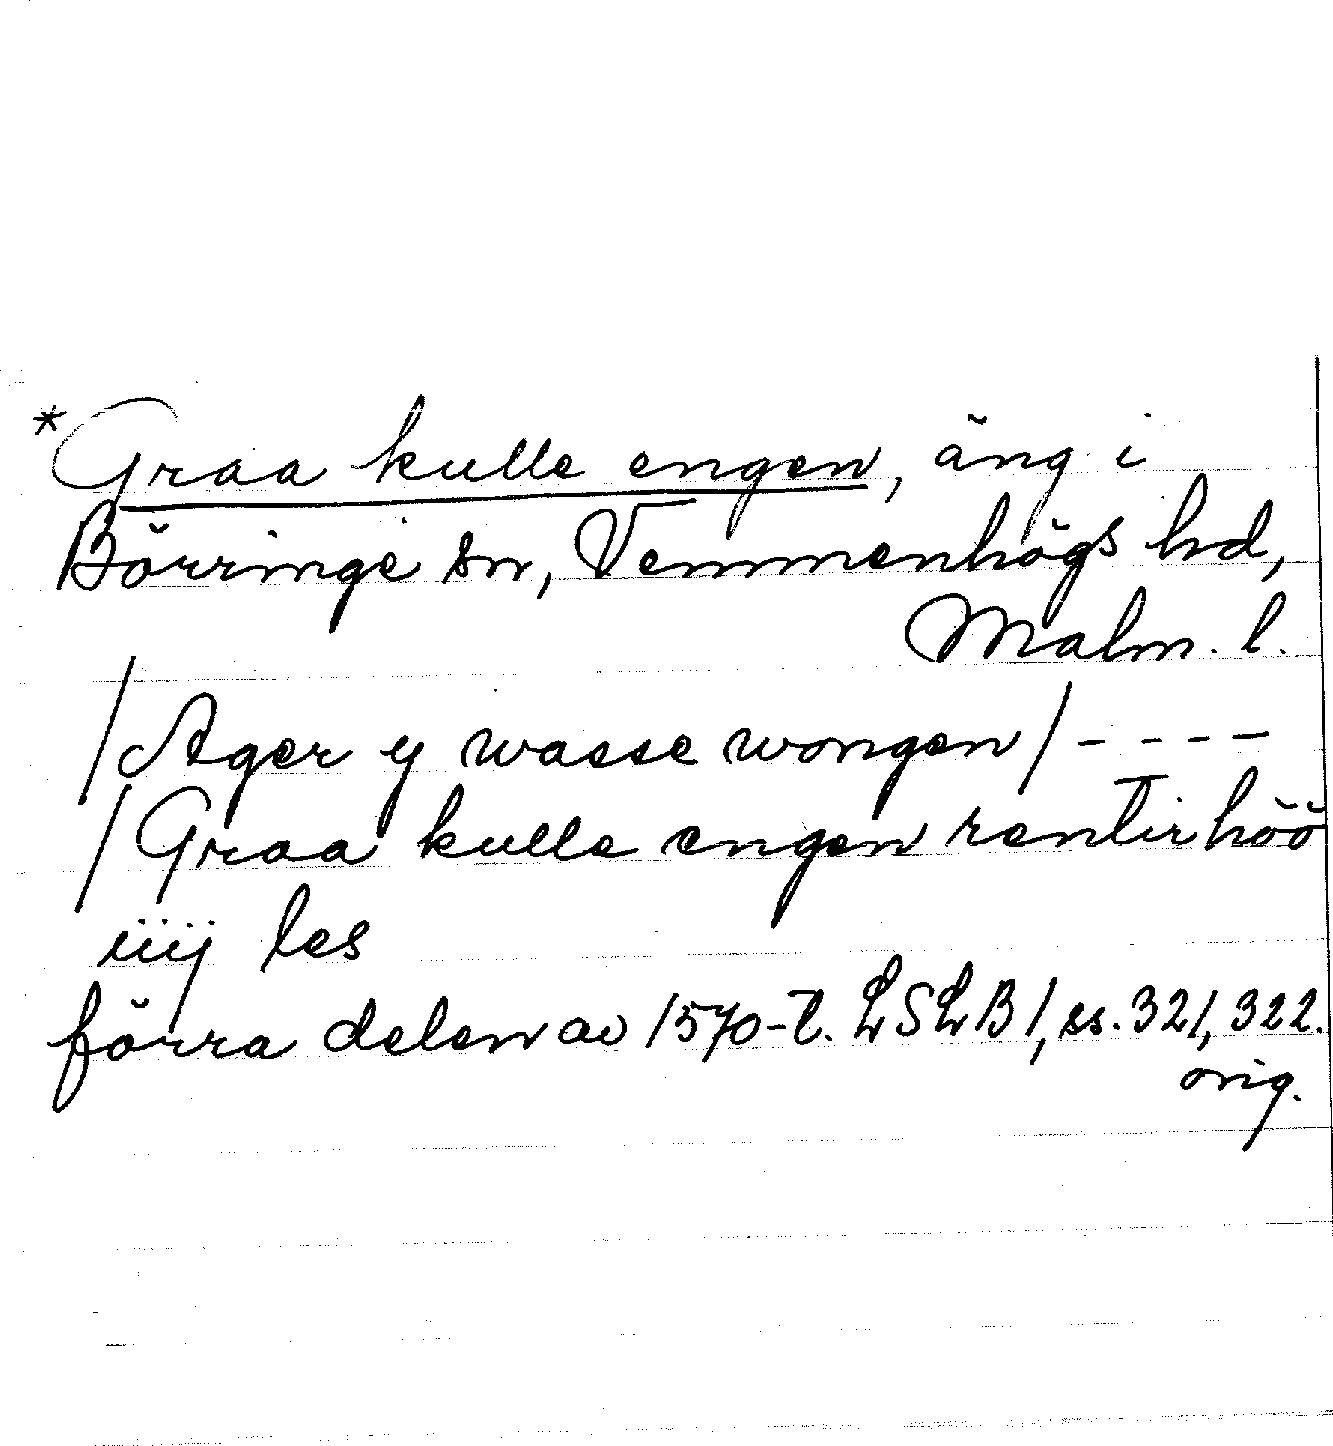 *Graa kulle engen, äng i
Börringe sn, Vemmenhögs hd,
Malm. l.
/Ager y wasse wongen/ - - - -
/Graa kulle engen rentir höö
iiij les
förra delen av 1570-t. LSLB 1, ss. 321, 322.
orig.